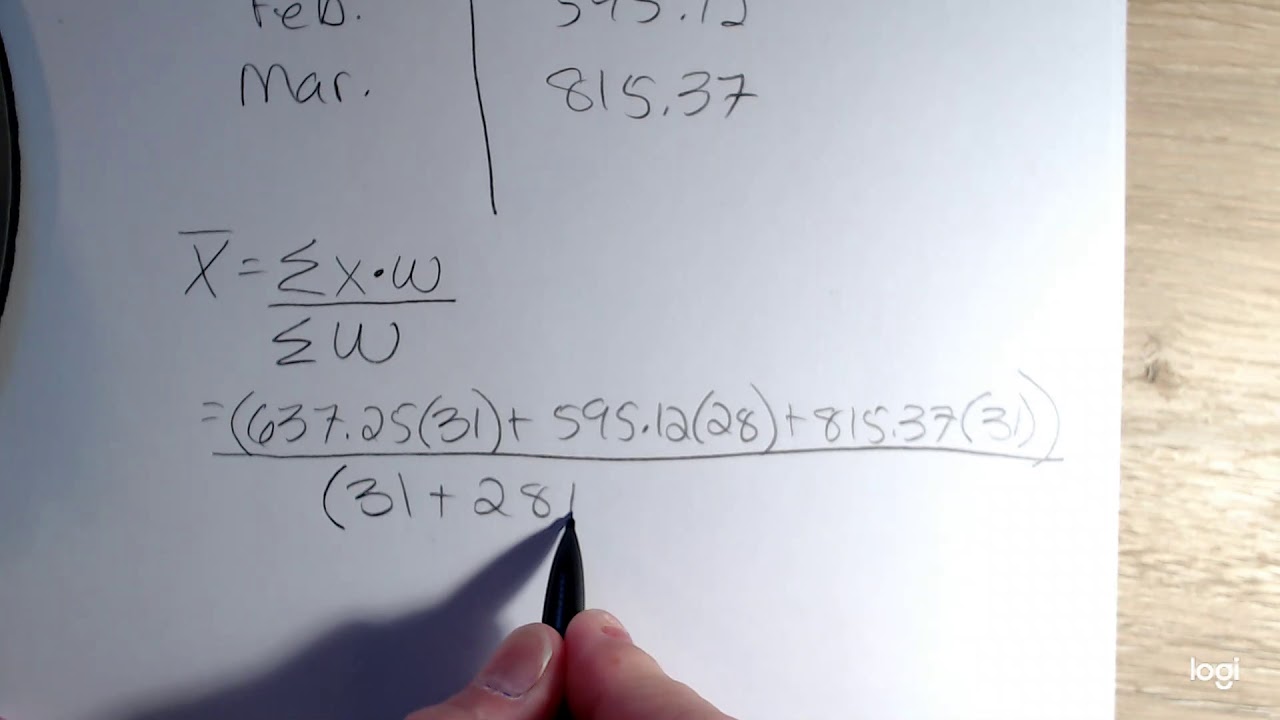 Feb. 595.12
Mar. 815.37
X̅ = Σx·w
Σw
=(637.25(31)+ 595.12(28)+815.37(31))
(31+28
logi